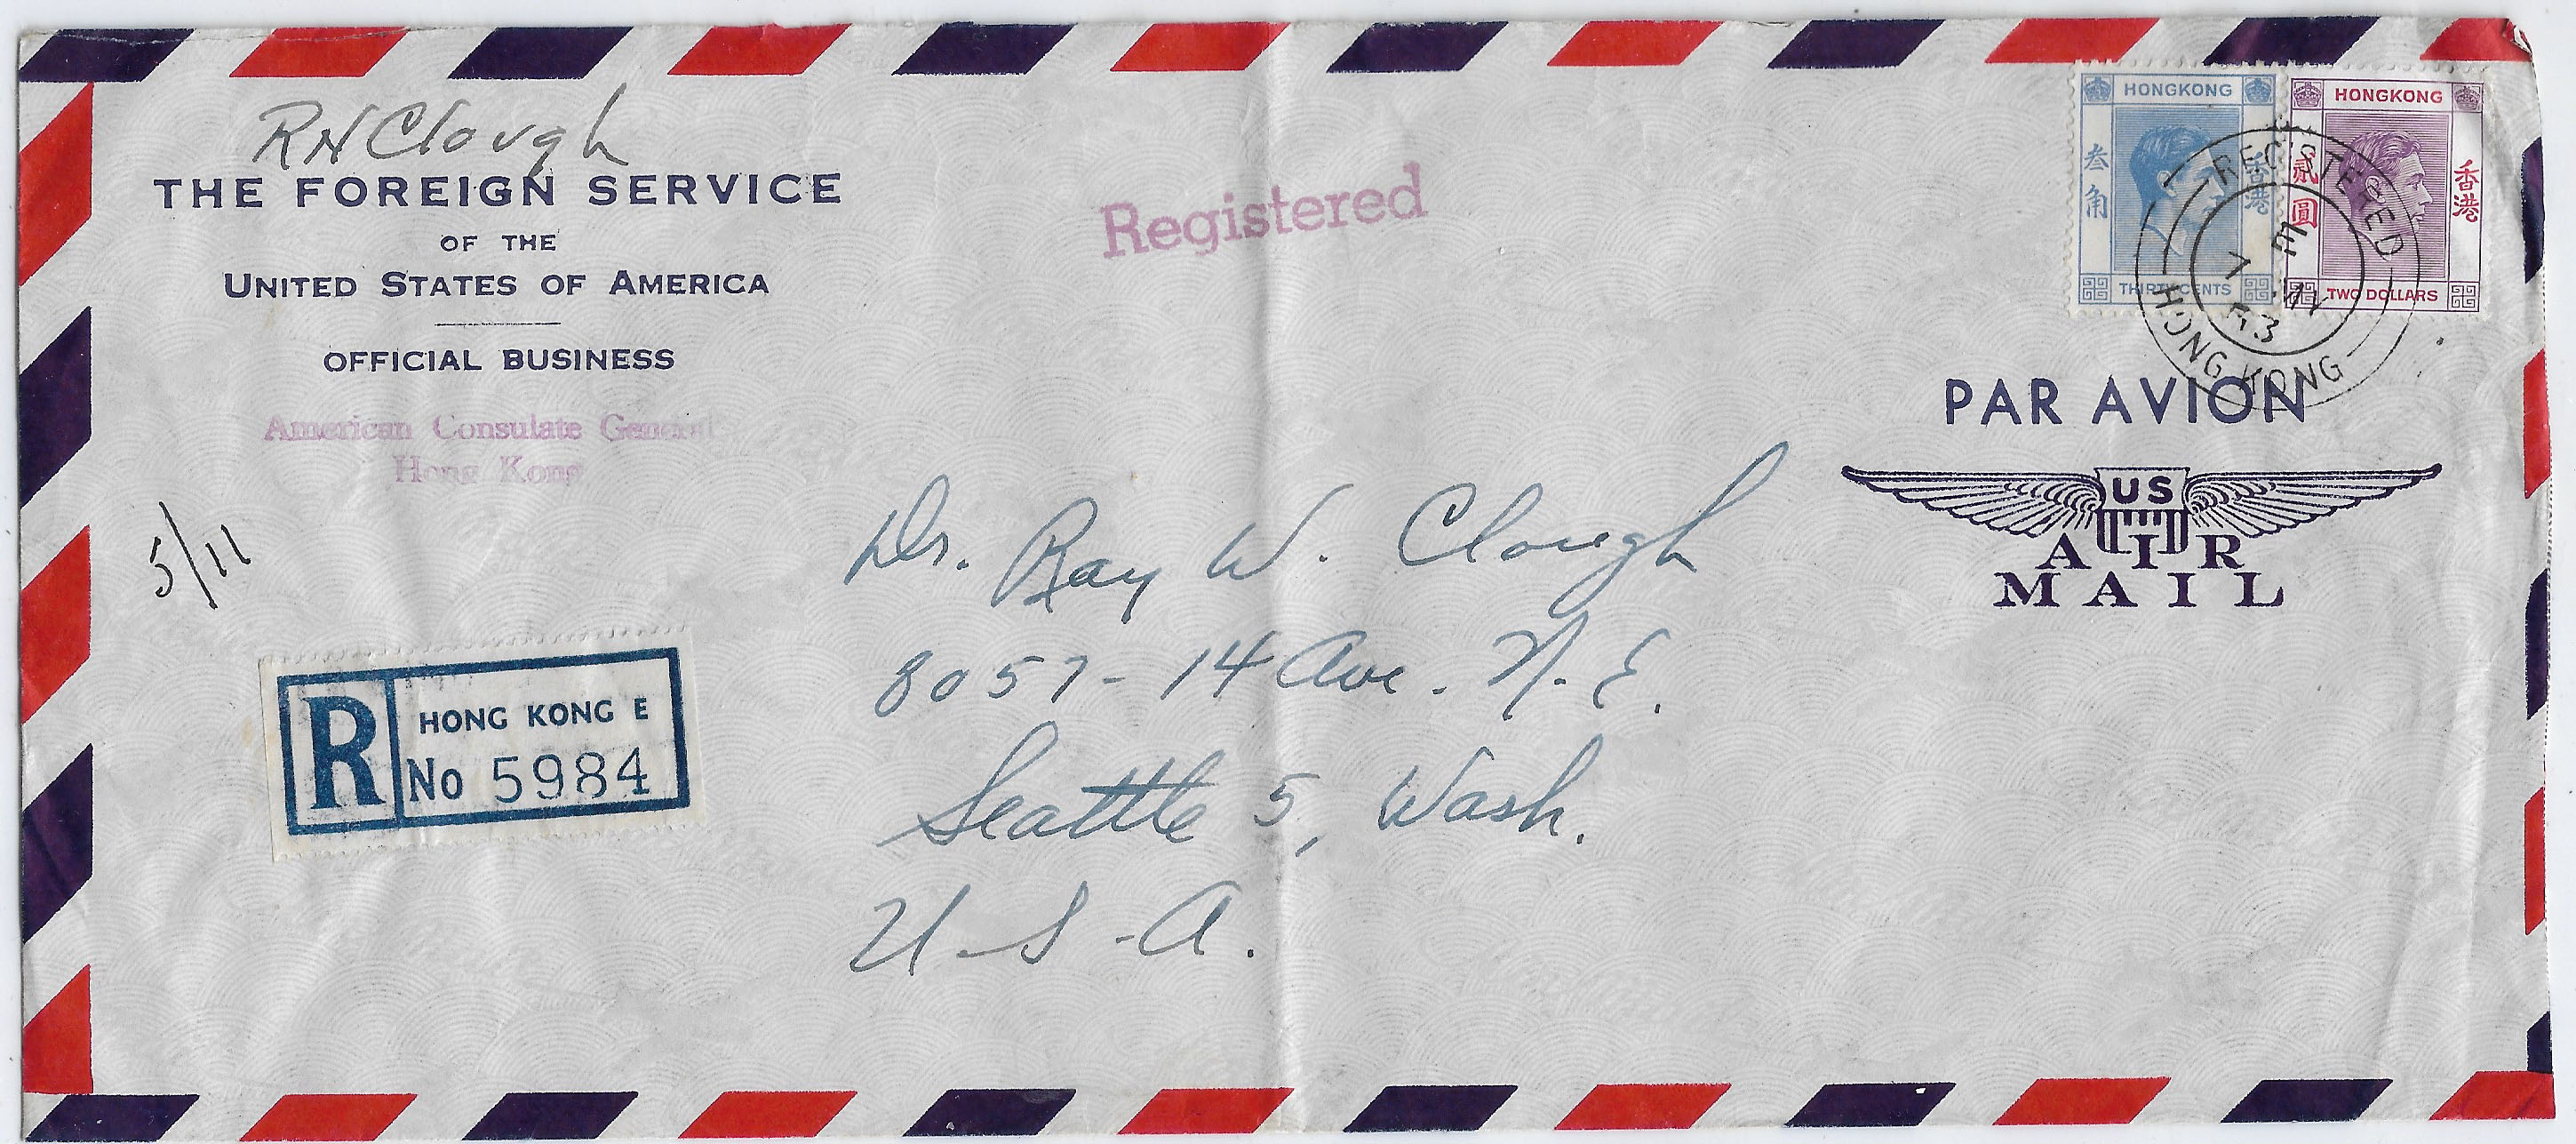 RN Clough
THE FOREIGN SERVICE
OF THE
UNITED STATES OF AMERICA
OFFICIAL BUSINESS
American Consulate General
Hong Kong
5/11
R
HONG KONG E
No 5984
Registered
HONGKONG
叁角
香港
THIRTY CENTS
HONGKONG
貳圓
香港
TWO DOLLARS
REGISTERED
7
HONG KONG
PAR AVION
US
AIR
MAIL
Dr. Ray W. Clough
8057-14 Ave. N.E.
Seattle 5, Wash.
U.S.A.